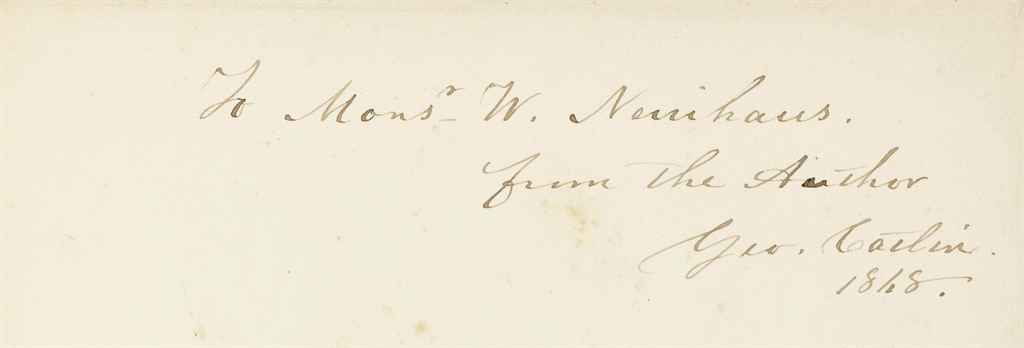 To Monsr W. Neuihaus.
from the Author
Geo. Catlin.
1868.